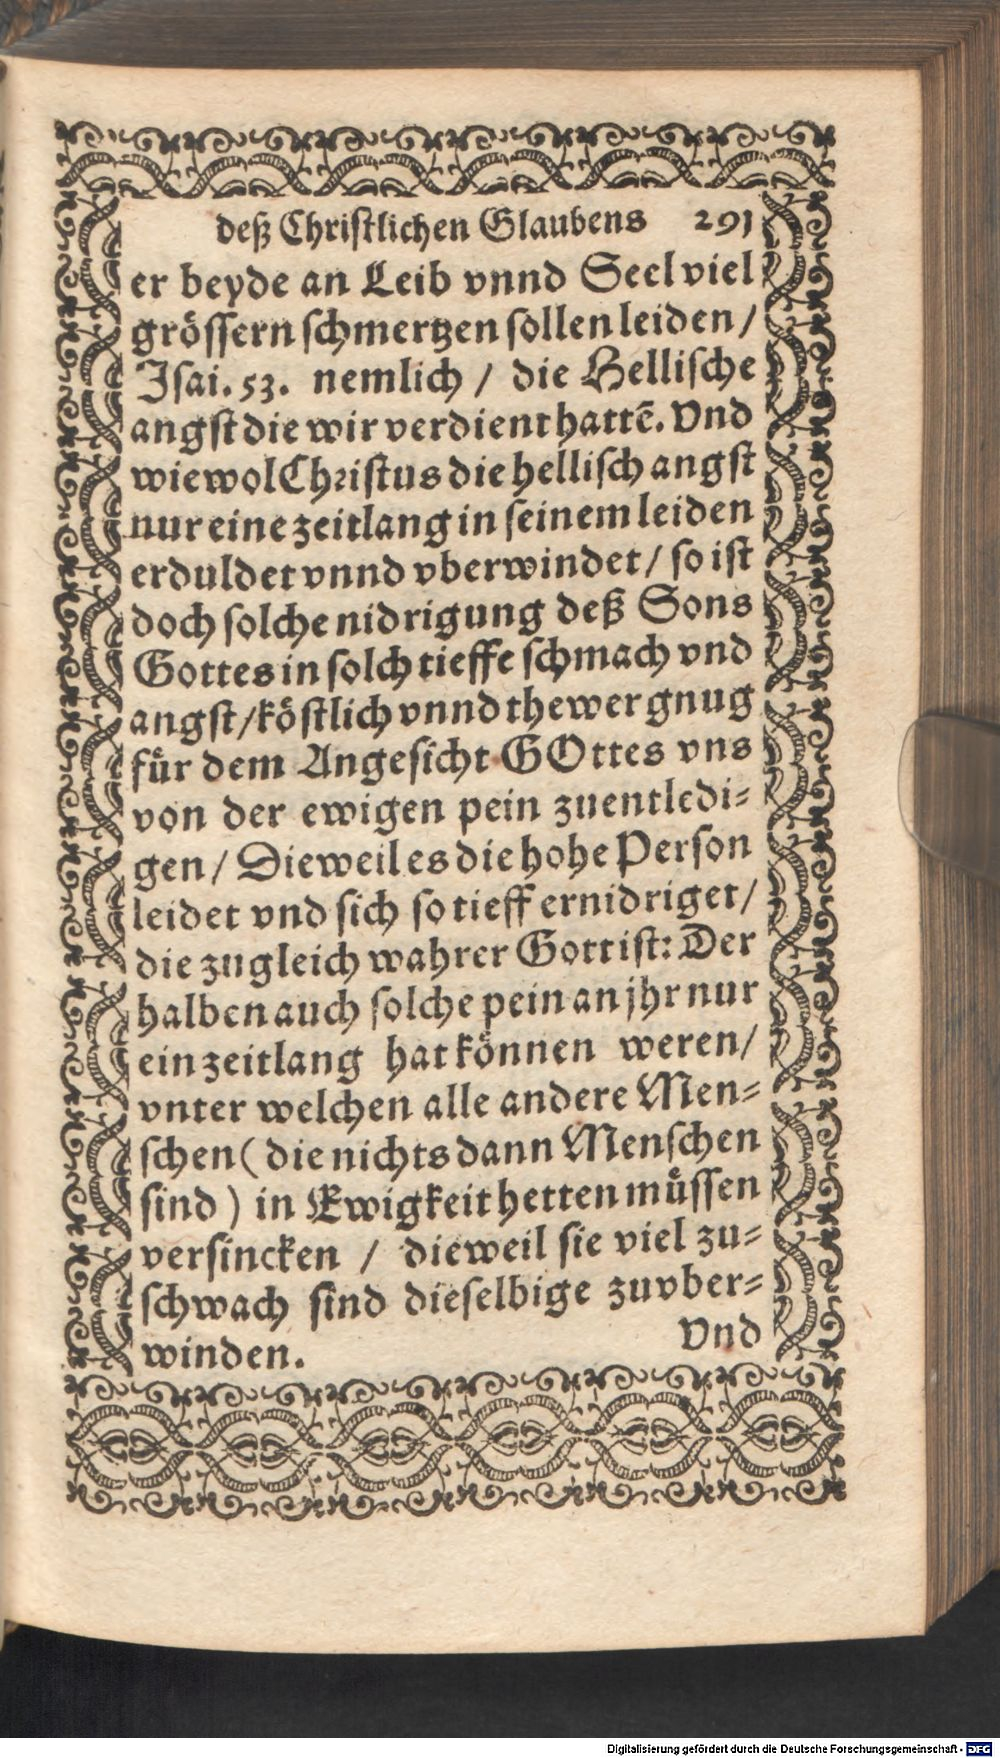 deß Chriſtlichen Glaubens 291
er beyde an Leib vnnd Seel viel
gröſſern ſchmertzen ſollen leiden /
Jſai. 53. nemlich / die Helliſche
angſt die wir verdient hattē. Vnd
wiewol Chꝛiſtus die helliſch angſt
nur eine zeitlang in ſeinem leiden
erduldet vnnd vberwindet / ſo iſt
doch ſolche nidrigung deß Sons
Gottes in ſolch tieffe ſchmach vnd
angſt / köſtlich vnnd thewer gnug
fuͤr dem Angeſicht GOttes vns
von der ewigen pein zuentledi⸗
gen / Dieweil es die hohe Perſon
leidet vnd ſich ſo tieff ernidriget /
die zugleich wahrer Gott iſt: Der
halben auch ſolche pein an jhr nur
ein zeitlang hat können weren /
vnter welchen alle andere Men⸗
ſchen ( die nichts dann Menſchen
ſind ) in Ewigkeit hetten muͤſſen
verſincken / dieweil ſie viel zu⸗
ſchwach ſind dieſelbige zuvber⸗
winden. Vnd
Digitalisierung gefördert durch die Deutsche Forschungsgemeinschaft - DFG